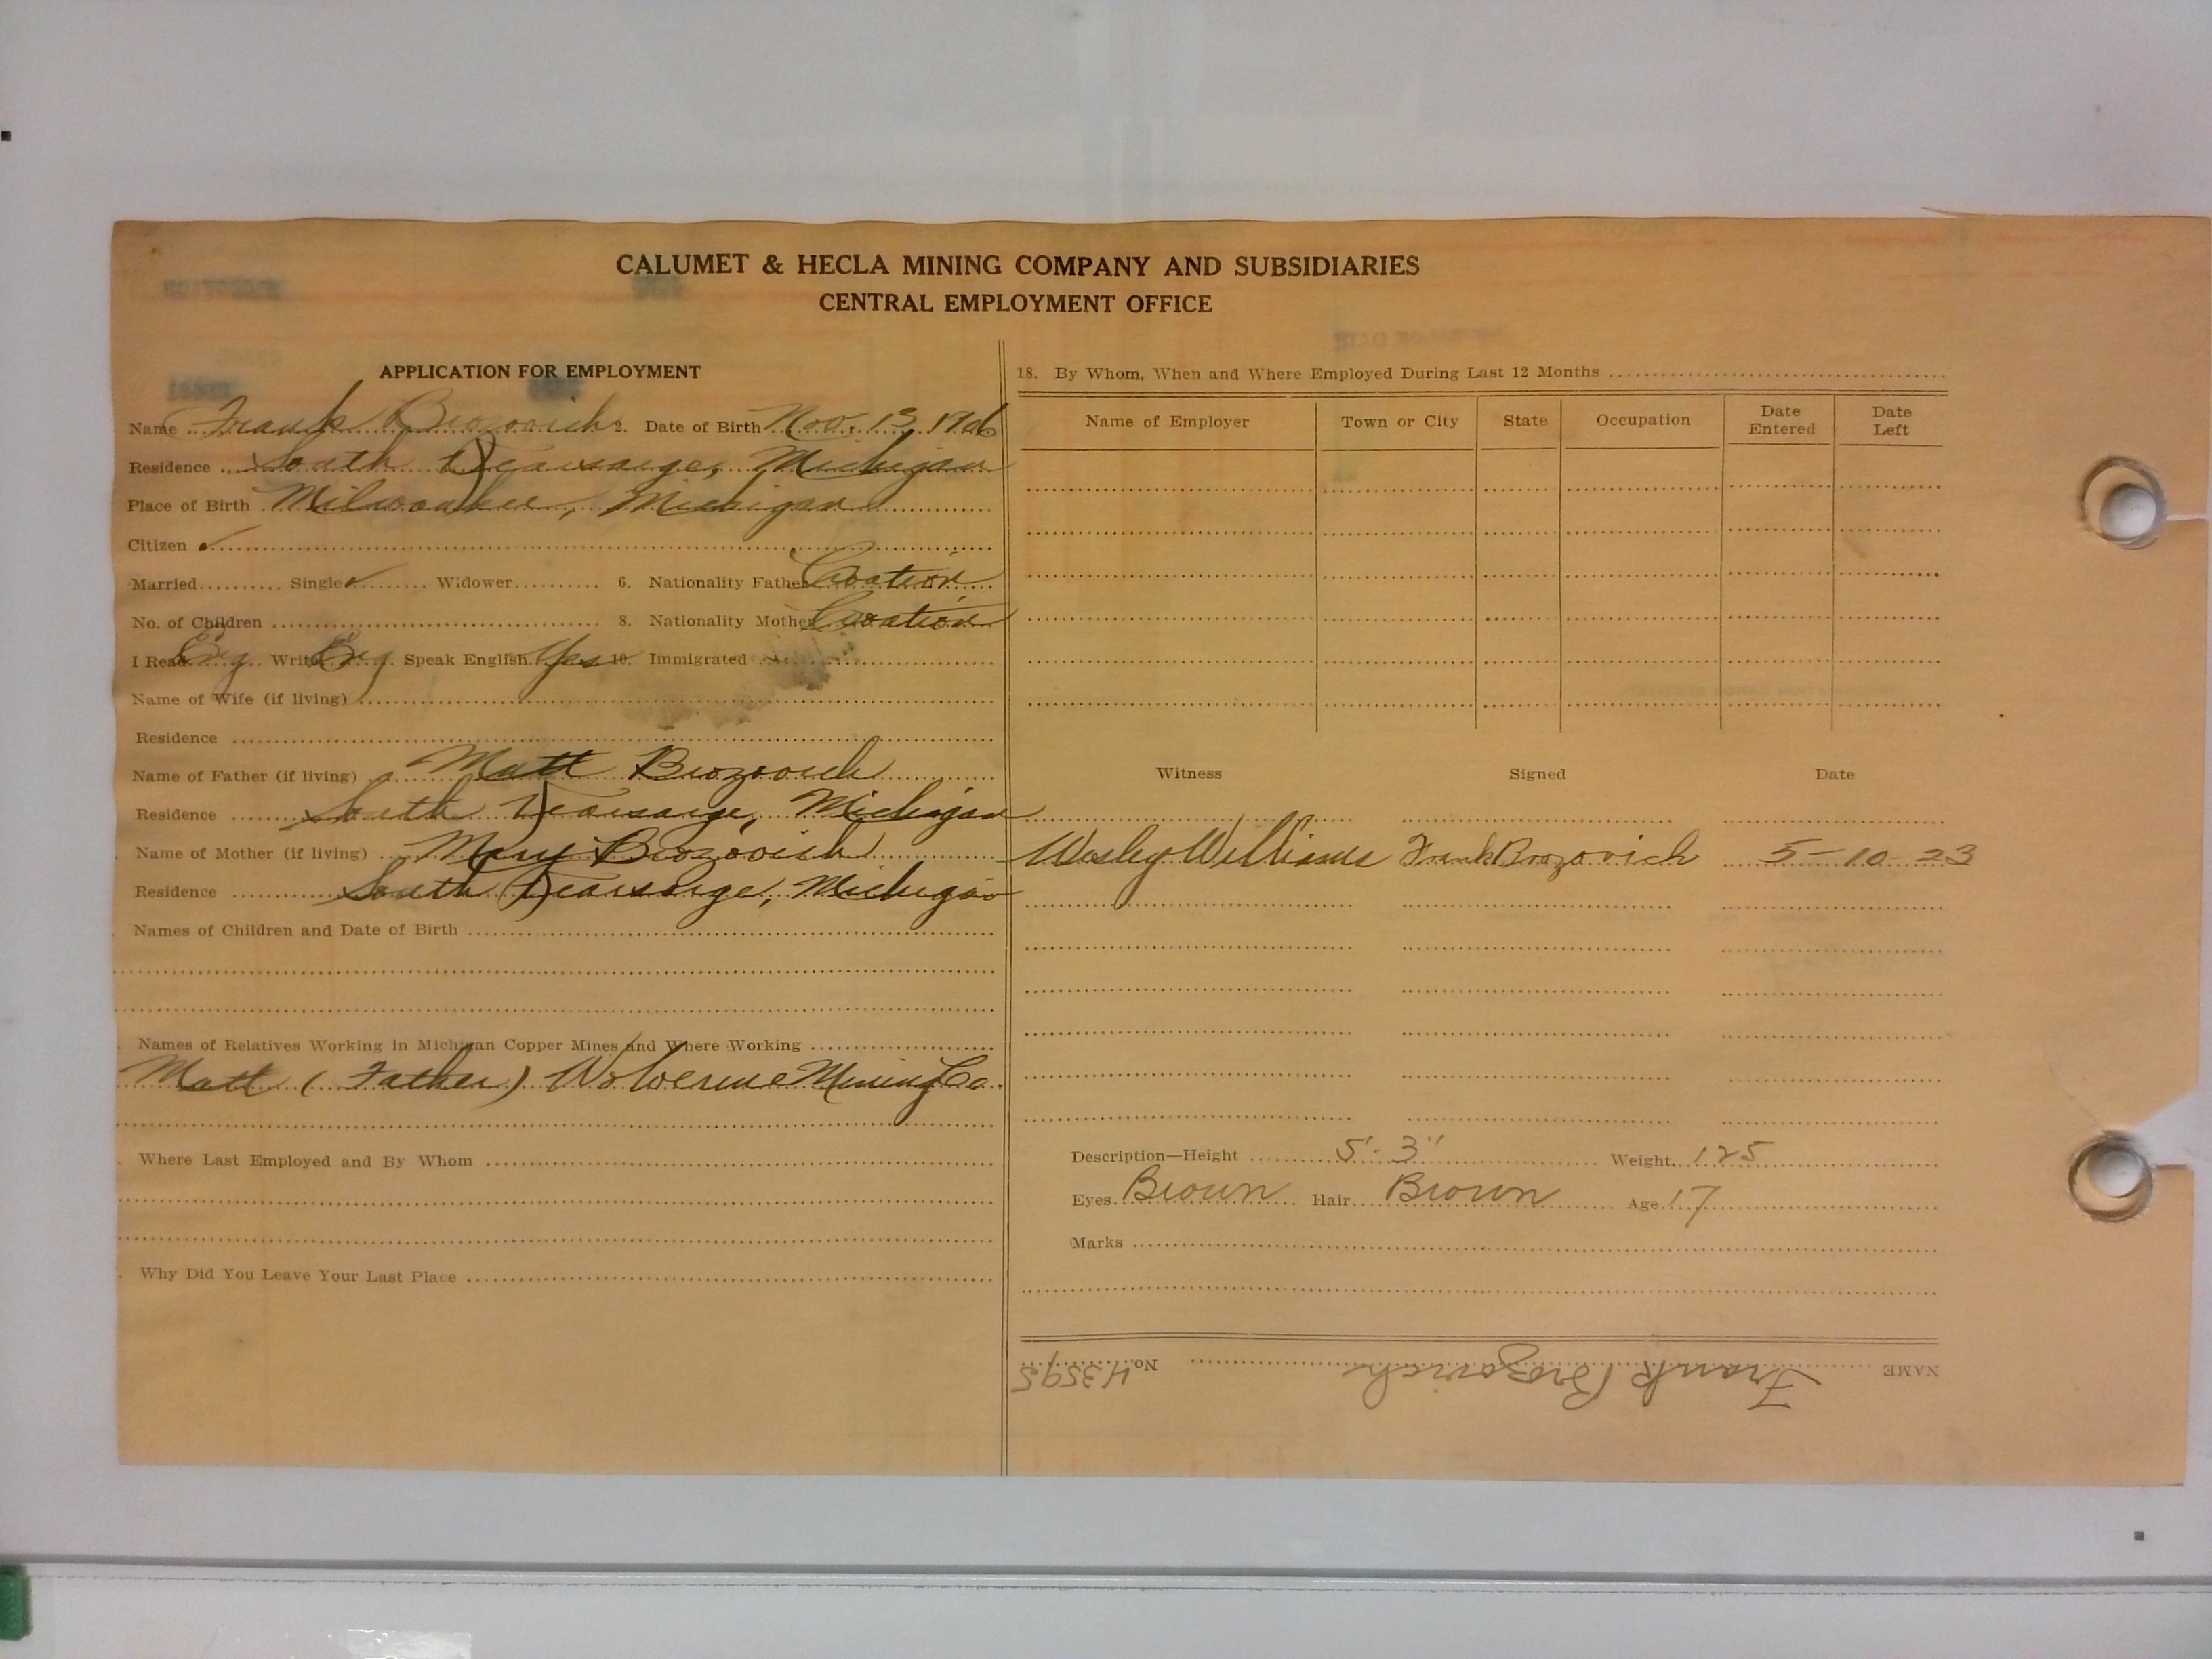 CALUMET & HECLA MINING COMPANY AND SUBSIDIARIES
CENTRAL EMPLOYMENT OFFICE
APPLICATION FOR EMPLOYMENT
Name Frank Brozovich 2. Date of Birth Nov. 13, 1906
Residence South Kearsarge, Michigan
Place of Birth Milwaukee, Michigan
Citizen ✓
Married Single ✓ Widower 6. Nationality Father Croatian
No. of Children 8. Nationality Mother Croatian
I Read Eng Write Eng Speak English Yes 10. Immigrated
Name of Wife (if living)
Residence
Name of Father (if living) Matt Brozovich
Residence South Kearsarge, Michigan
Name of Mother (if living) Mary Brozovich
Residence South Kearsarge, Michigan
Names of Children and Date of Birth
Names of Relatives Working in Michigan Copper Mines and Where Working
Matt (Father) Wolverine Mining Co.
Where Last Employed and By Whom
Why Did You Leave Your Last Place
18. By Whom, When and Where Employed During Last 12 Months
Name of Employer Town or City State Occupation Date Entered Date Left
Witness Signed Date
Wesley Williams Frank Brozovich 5-10-23
Description—Height 5'-3" Weight 125
Eyes Brown Hair Brown Age 17
Marks
NAME Frank Brozovich No. 43595